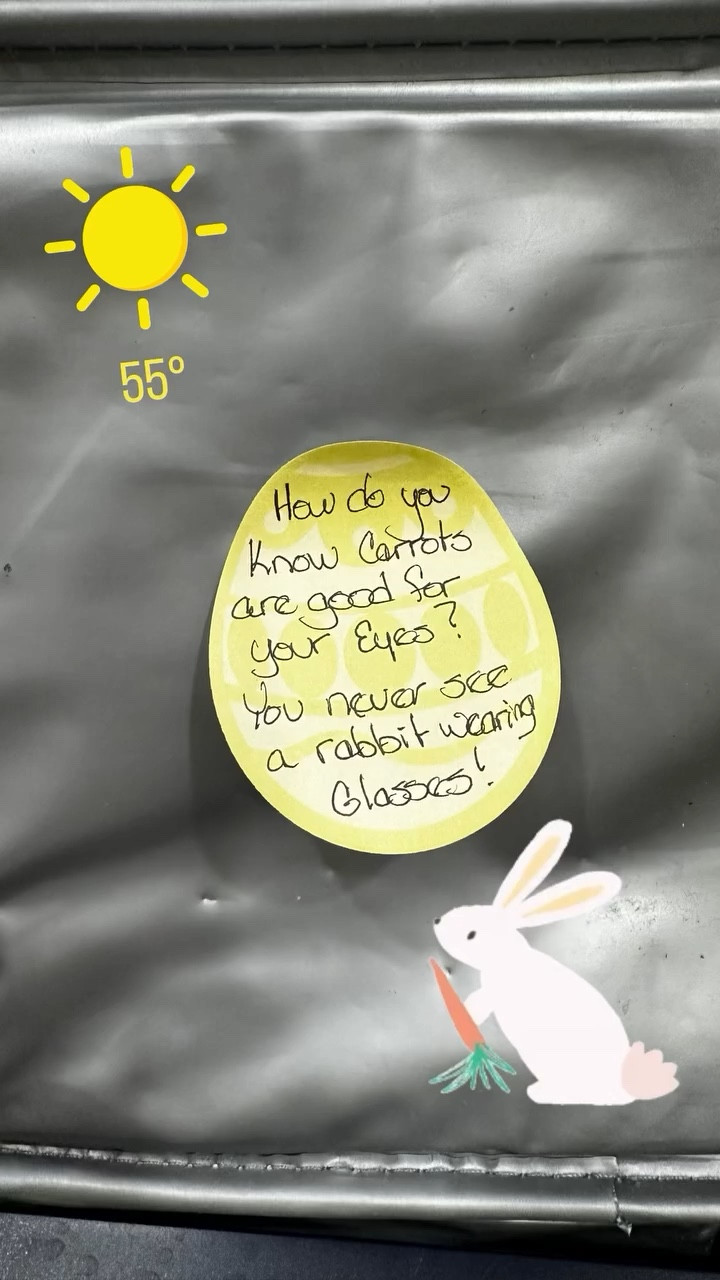 55°
How do you
know Carrots
are good for
your Eyes?
You never see
a rabbit wearing
Glasses!